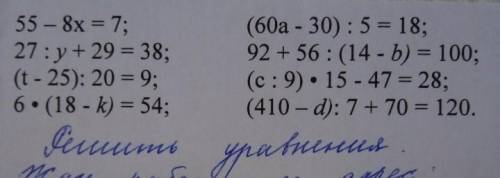 55 – 8x = 7;
27 : y + 29 = 38;
(t - 25): 20 = 9;
6 • (18 - k) = 54;
(60a - 30) : 5 = 18;
92 + 56 : (14 - b) = 100;
(c : 9) • 15 - 47 = 28;
(410 – d): 7 + 70 = 120.
Решить уравнения.